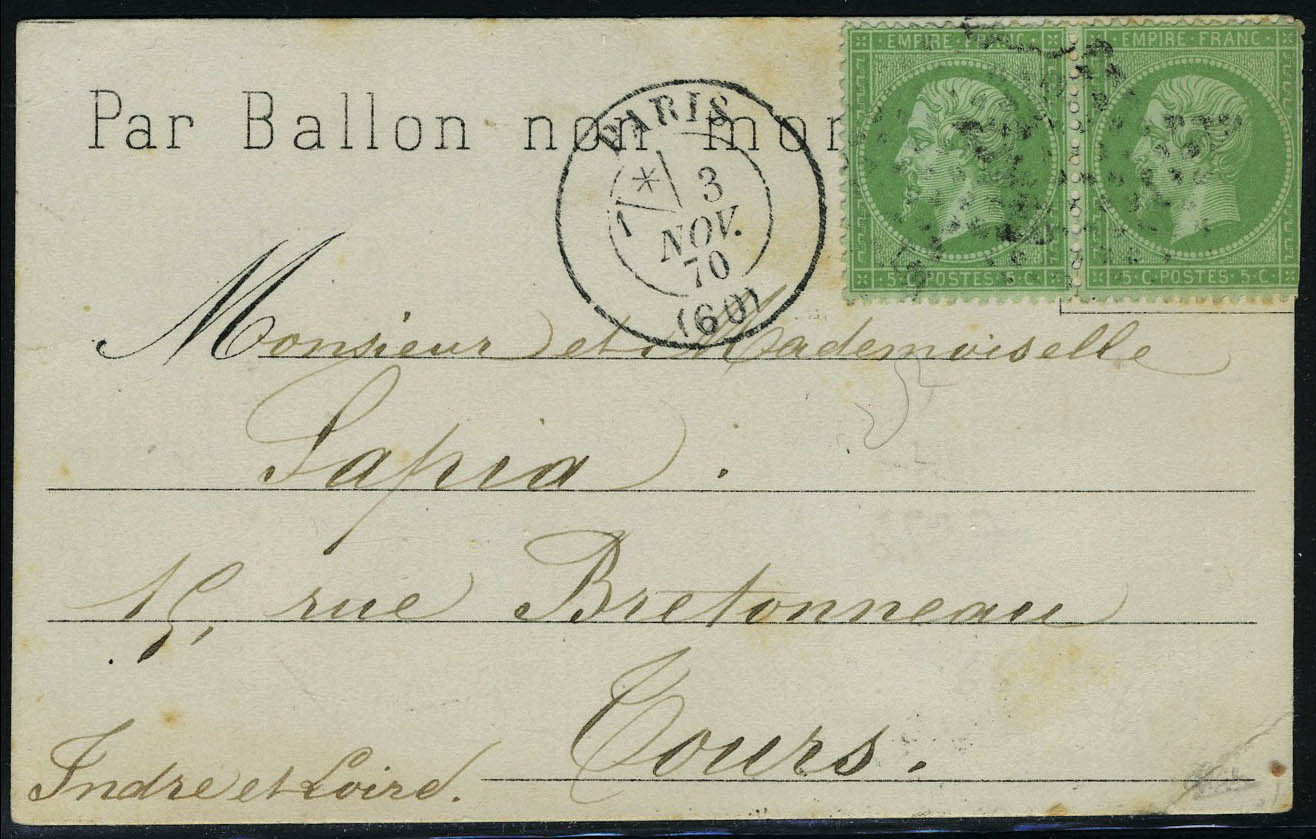 EMPIRE·FRANC·
EMPIRE·FRANC·
Par Ballon non mon
PARIS
1 * 3
NOV.
70
(60)
5·C·POSTES·5·C·
5·C·POSTES·5·C·
Monsieur et Mademoiselle
Lapia.
15, rue Bretonneau
Tours.
Indre et Loire.